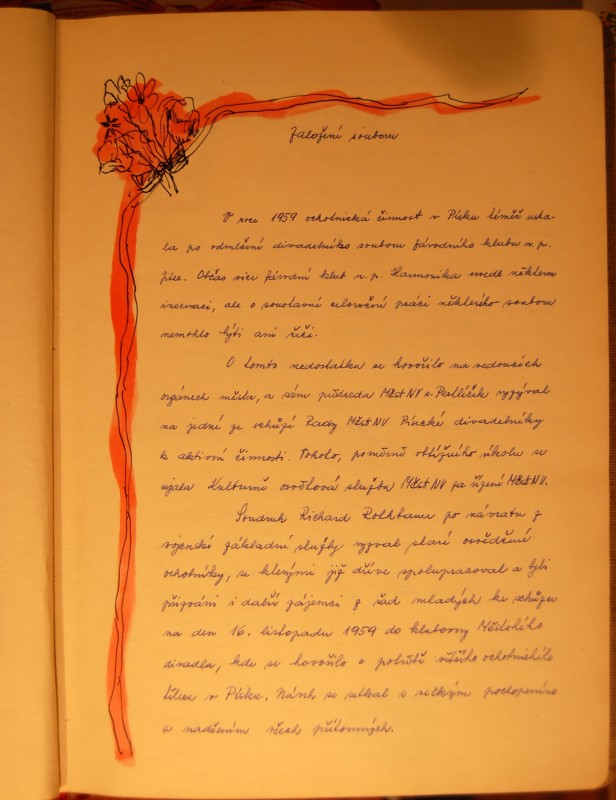 Založení souboru
V roce 1959 ochotnická činnost v Písku téměř usta-
la po odmlčení divadelního souboru Závodního klubu n. p.
Jitex. Občas sice Závodní klub n. p. Harmonika uvedl některou
inscenaci, ale o soustavné celoroční práci některého souboru
nemohlo býti ani řeči.
O tomto nedostatku se hovořilo na vedoucích
orgánech města, a sám předseda MěstNV s. Petlířík vyzýval
na jedné ze schůzí Rady MěstNV Písecké divadelníky
k aktivní činnosti. Tohoto, poměrně obtížného úkolu se
ujala Kulturně osvětová služba MěstNV za řízení MěstNV.
Soudruh Richard Rothbauer po návratu z
vojenské základní služby vyzval staré osvědčené
ochotníky, se kterými již dříve spolupracoval a byli
přizváni i další zájemci z řad mladých ke schůzce
na den 16. listopadu 1959 do klubovny Městského
divadla, kde se hovořilo o potřebě ochotnického
tělesa v Písku. Návrh se setkal s velkým pochopením
a nadšením všech přítomných.